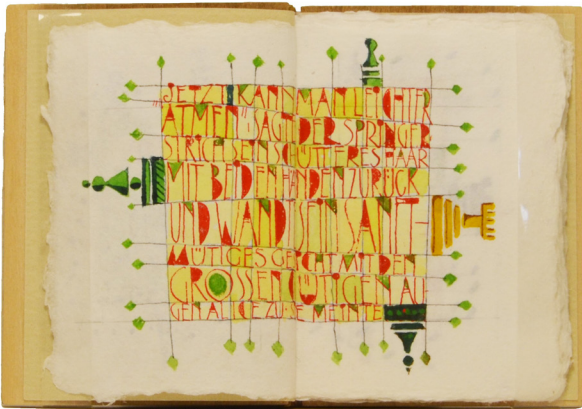 „JETZT KANN MAN LEICHTER
ATMEN", SAGTE DER SPRINGER
STRICH SEIN SCHÜTTERES HAAR
MIT BEIDEN HÄNDEN ZURÜCK
UND WANDTE SEIN SANFT-
MÜTIGES GESICHT MIT DEN
GROSSEN GÜTIGEN AU-
GEN ALICE ZU. SIE MEINTE